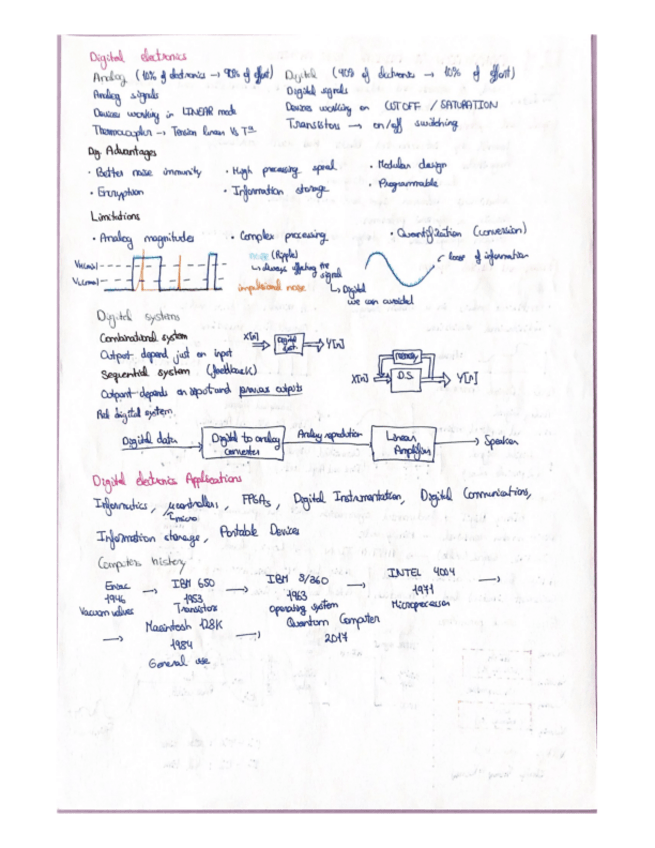 Digital electronics
Analog (10% of electronics → 90% of effort)
Analog signals
Devices working in LINEAR mode
Thermocouples → Tension linear Vs Tª
Digital (90% of electronics → 10% of effort)
Digital signals
Devices working on CUTOFF / SATURATION
Transistors → on/off switching
Dig. Advantages
· Better noise immunity · High processing speed · Modular design
· Encryption · Information storage · Programmable
Limitations
· Analog magnitudes · Complex processing · Quantification (conversion)
VH(min)
VL(max)
noise (Ripple)
↳ always affecting the signal
impulsional noise
↳ Digital
we can avoided
loss of information
Digital systems
Combinational system
Output depend just on input
X[n] → Digital syst. → Y[n]
Sequential system (feedback)
Output depends on input and previous outputs
X[n] memory D.S. Y[n]
digital system
Digital data → Digital to analog converter Analog reproduction Linear Amplifier → Speaker
Digital electronics Applications
Informatics, μcontrollers, FPGAs, Digital Instrumentation, Digital Communications,
micro
Information storage, Portable Devices
Computer history
Eniac
1946
Vacuum valves
→
IBM 650
1953
Transistor
→
IBM S/360
1963
Operating system
→
INTEL 4004
1971
Microprocessor
→
→
Macintosh 128K
1984
General use
→
Quantum Computer
2017